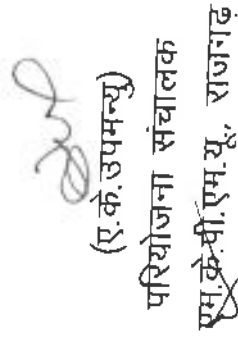 (रा.के.उपमन्यु)
परियोजना संचालक
एम.के.वी.एम.यूँ. राजगढ़